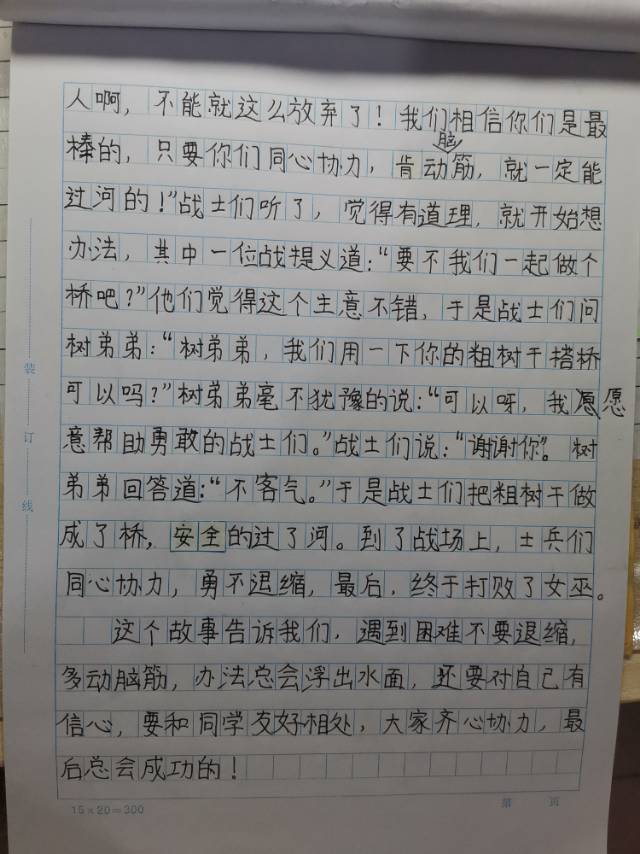 人啊，不能就这么放弃了！我们相信你们是最
棒的，只要你们同心协力，肯动脑筋，就一定能
过河的！”战士们听了，觉得有道理，就开始想
办法，其中一位战提义道：“要不我们一起做个
桥吧？”他们觉得这个主意不错，于是战士们问
树弟弟：“树弟弟，我们用一下你的粗树干搭桥
可以吗？”树弟弟毫不犹豫的说：“可以呀，我愿
意帮助勇敢的战士们。”战士们说：“谢谢你”。树
弟弟回答道：“不客气。”于是战士们把粗树干做
成了桥，安全的过了河。到了战场上，士兵们
同心协力，勇不退缩，最后，终于打败了女巫。
这个故事告诉我们，遇到困难不要退缩，
多动脑筋，办法总会浮出水面，还要对自己有
信心，要和同学友好相处，大家齐心协力，最
后总会成功的！
装
订
线
15×20=300
第 页